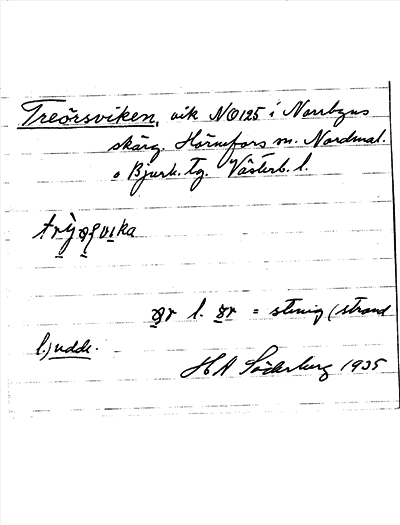 Treörsviken, vik NO125 i Norrbyns
skärg. Hörnefors sn. Nordmal.
o Bjurh. tg. Västerb. l.
l. = stenig (strand
l.) udde.
H A Söderberg 1935